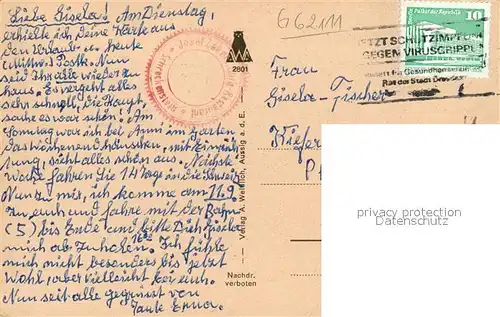 Liebe Gisela! Am Dienstag,
erhielt ich deine Karte aus
den Urlaub. Heute
(Mittw.) Postk. Nun
seid Ihr alle wieder zu
haus. Es vergeht alles
sehr schnell, die Haupt,
sache es war schön! Am
Sonntag war ich bei Anni im Garten
das Wochenendhäuschen, mit Einrich
tung, sieht alles schön aus. Nächste
Woche fahren Sie 14 Tage in die Schweiz
Nun zu mir, ich komme am 11.9.
zu euch und fahre mit der Bahn
(5) bis Ende und bitte Dich Gisela
mich ab zu holen. Ich fühle
mich nicht besonders bis jetzt
Wohl, aber vielleicht bei euch.
Nun seit alle gegrüsst von
Tante Erna.
2801
Verlag A. Weinlich, Aussig a. d. E.
Nachdr.
verboten
G62411
JETZT SCHUTZIMPFUNG
GEGEN VIRUSGRIPPE
Rat der Stadt Dresden
Palast der Republik
10
Frau
Gisela Fischer
privacy protection
Datenschutz